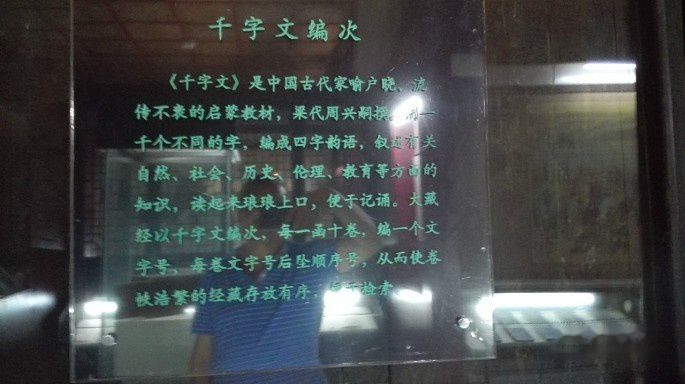 千字文编次
《千字文》是中国古代家喻户晓、流
传不衰的启蒙教材，梁代周兴嗣撰。用一
千个不同的字，编成四字韵语，叙述有关
自然、社会、历史、伦理、教育等方面的
知识，读起来琅琅上口，便于记诵。大藏
经以千字文编次，每一函十卷，编一个文
字号，每卷文字号后坠顺序号，从而使卷
帙浩繁的经藏存放有序，便于检索。